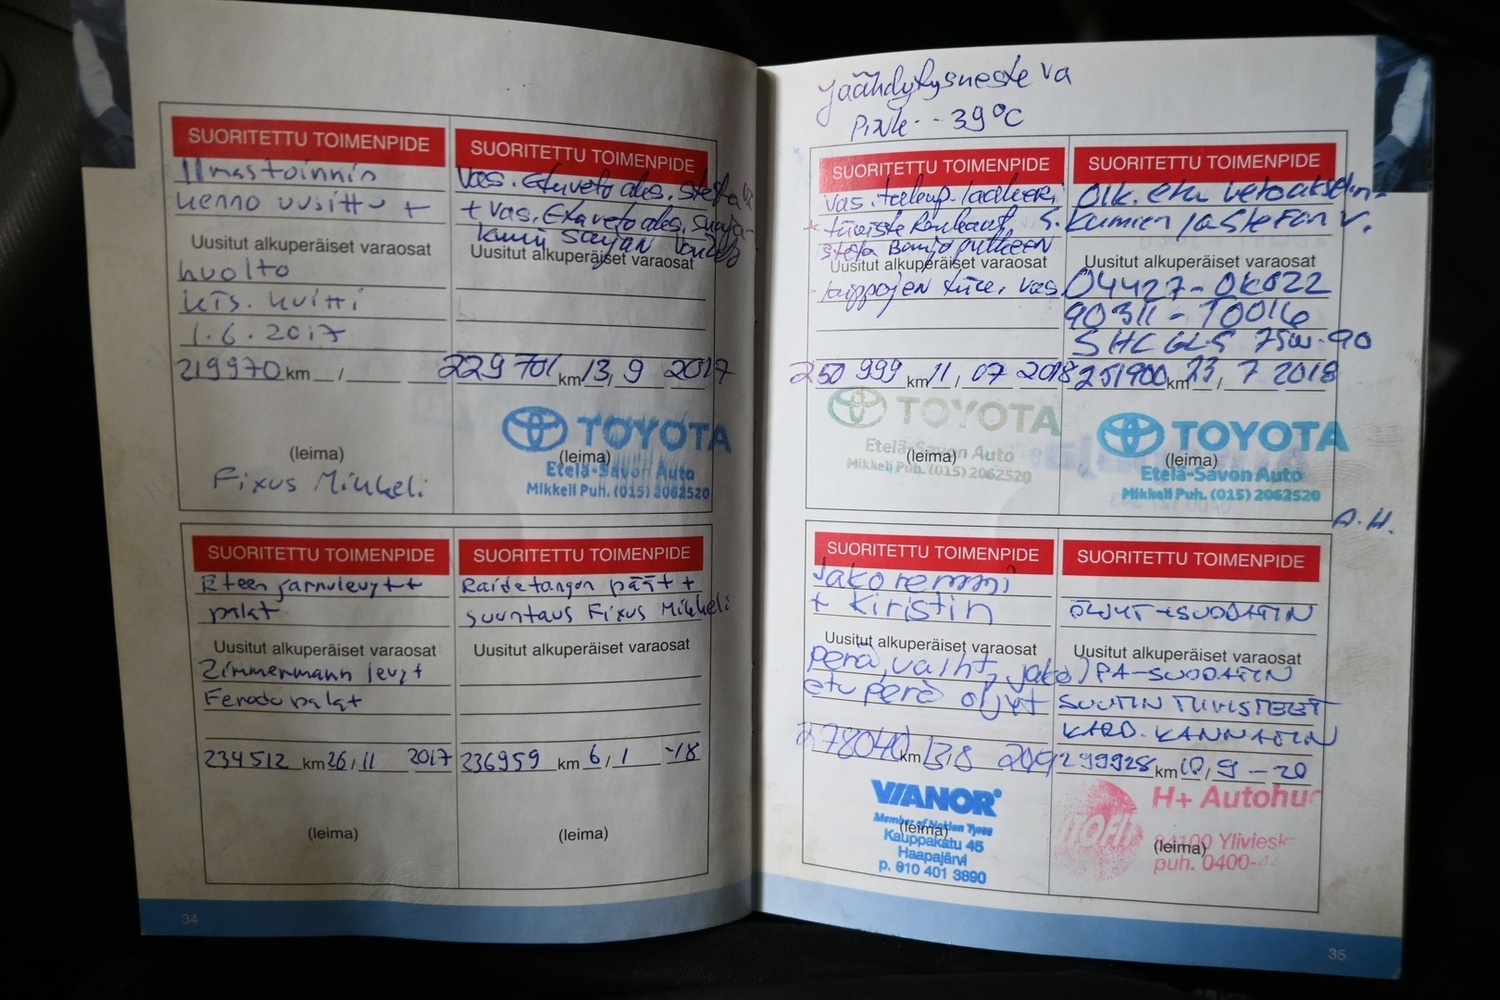 SUORITETTU TOIMENPIDE
Ilmastoinnin
kenno uusittu +
Uusitut alkuperäiset varaosat
huolto
kts. kuitti
1.6.2017
219970 km /
(leima)
Fixus Mikkeli
SUORITETTU TOIMENPIDE
Vas. Etuveto aks. stefa
+ vas. Etuveto aks. suoja-
kumi sarjan vaihto
Uusitut alkuperäiset varaosat
229701 km 13/9 2017
TOYOTA
(leima)
Etelä-Savon Auto
Mikkeli Puh. (015) 2062520
SUORITETTU TOIMENPIDE
Eteen jarrulevyt+
palat
Uusitut alkuperäiset varaosat
Zimmermann levyt
Ferodo palat
234512 km 26/11 2017
(leima)
SUORITETTU TOIMENPIDE
Raidetangon päät +
suuntaus Fixus Mikkeli
Uusitut alkuperäiset varaosat
236959 km 6/1 -18
(leima)
34
Jäähdytysneste va
-39°C
SUORITETTU TOIMENPIDE
Vas. laakeri
+ tiiviste
stefa
Uusitut alkuperäiset varaosat
vas.
250 999 km 11/07 2018
TOYOTA
Etelä-Savon Auto
(leima)
Mikkeli Puh. (015) 2062520
SUORITETTU TOIMENPIDE
Oik. etu vetoakselin
kumien ja stefan v.
Uusitut alkuperäiset varaosat
04427-0K022
90311-T0016
SHC GLS 75W-90
251900 km 23/7 2018
TOYOTA
(leima)
Etelä-Savon Auto
Mikkeli Puh. (015) 2062520
A.H.
SUORITETTU TOIMENPIDE
Jakoremmi
+ kiristin
Uusitut alkuperäiset varaosat
perä, vaiht, jako)
etuperä öljyt
278040 km 13/8 2019
VIANOR
Member of Nokian Tyres
(leima)
Kauppakatu 45
Haapajärvi
p. 010 401 3890
SUORITETTU TOIMENPIDE
ÖLJYT+SUODATIN
Uusitut alkuperäiset varaosat
PA-SUODATIN
SUUTIN TIIVISTEET
KARD. KANNATIN
299928 km 10/9-20
H+ Autohu
(leima)
84100 Yliviesk
puh. 0400-44
35